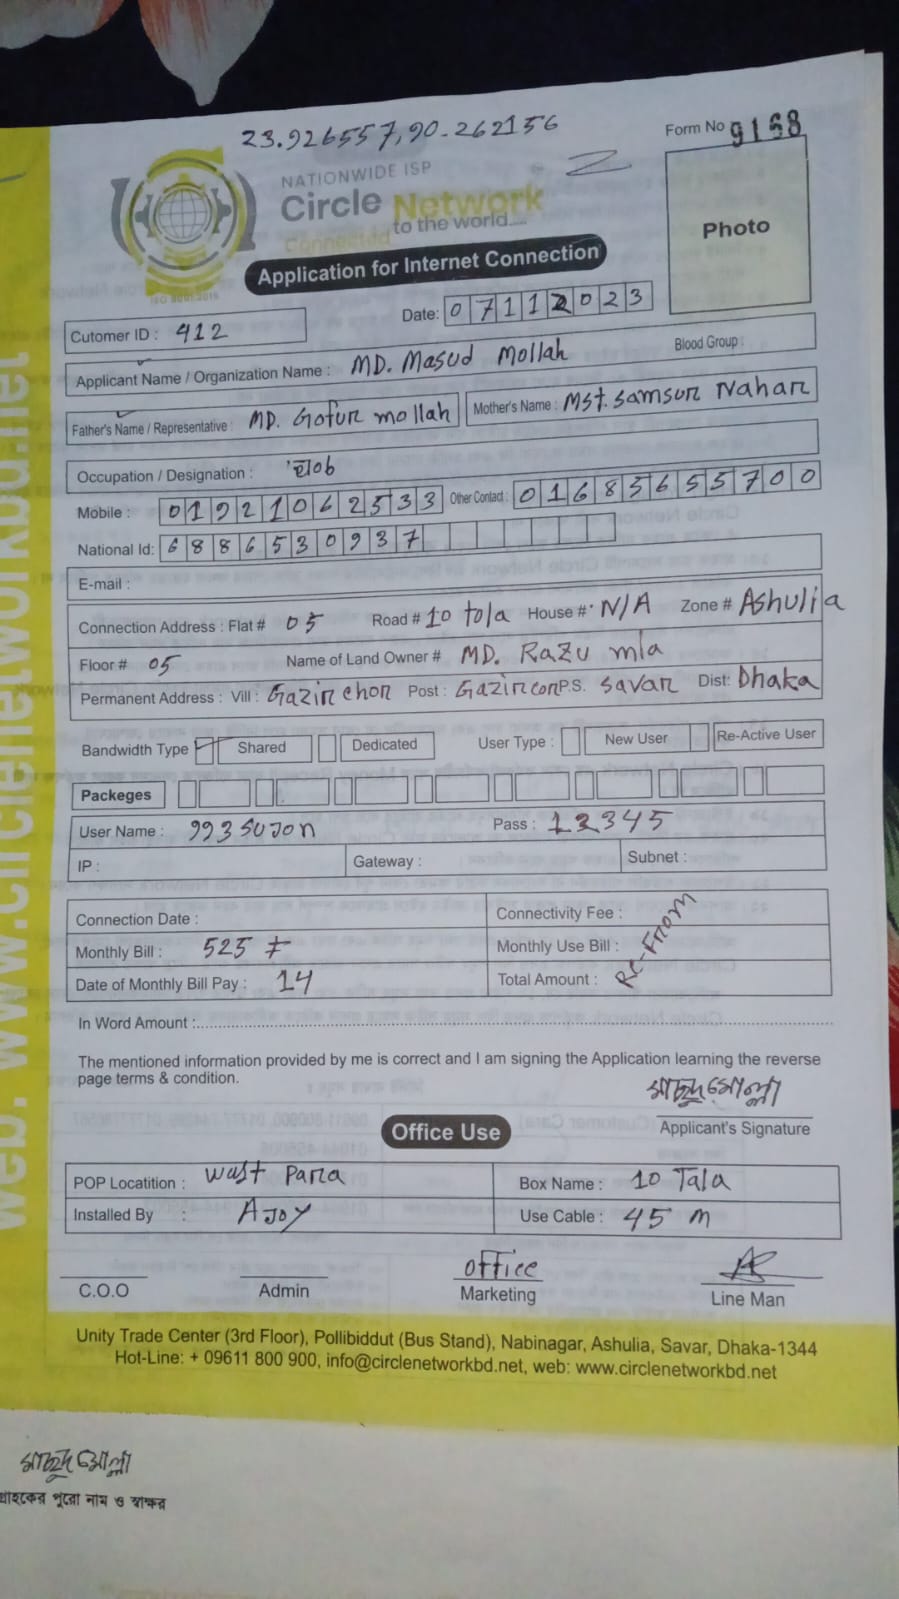 23.926557,90.262156
Form No 9168
NATIONWIDE ISP
Circle Network
Connected to the world....
Photo
ISO 9001:2015
Application for Internet Connection
Cutomer ID : 412
Date: 07112023
Applicant Name / Organization Name : MD. Masud Mollah Blood Group :
Father's Name / Representative : MD. Gofur mollah Mother's Name : Mst. Samsur Nahar
Occupation / Designation :
Mobile : 01921062533 Other Contact : 01685655700
National Id: 6886530937
E-mail :
Connection Address : Flat # 05 Road # 10 tola House # N/A Zone # Ashulia
Floor # 05 Name of Land Owner # MD. Razu mla
Permanent Address : Vill : Gazirchor Post : Gazircor P.S. Savar Dist: Dhaka
Bandwidth Type Shared Dedicated User Type : New User Re-Active User
Packeges
User Name : 993sujon Pass : 12345
IP : Gateway : Subnet :
Connection Date : Connectivity Fee :
Monthly Bill : 525 Monthly Use Bill :
Date of Monthly Bill Pay : 14 Total Amount :
RE-FROM
In Word Amount :
The mentioned information provided by me is correct and I am signing the Application learning the reverse
page terms & condition.
মাছুদ মোল্লা
Applicant's Signature
Office Use
POP Locatition : Wast Para Box Name : 10 Tala
Installed By : AJOY Use Cable : 45 m
office
C.O.O Admin Marketing Line Man
Unity Trade Center (3rd Floor), Pollibiddut (Bus Stand), Nabinagar, Ashulia, Savar, Dhaka-1344
Hot-Line: + 09611 800 900, info@circlenetworkbd.net, web: www.circlenetworkbd.net
web: www.circlenetworkbd.net
মাছুদ মোল্লা
গ্রাহকের পুরো নাম ও স্বাক্ষর